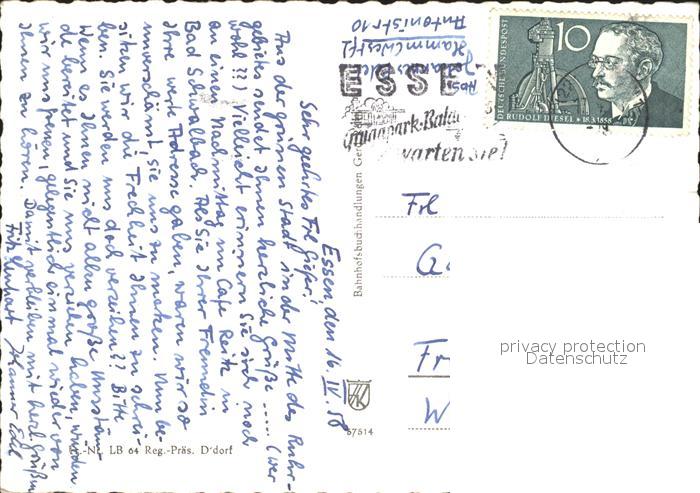 Essen den 16. IV. 58
Sehr geehrtes Frl.
Aus der grünen Stadt in der Mitte des Ruhr-
gebiets sendet Ihnen herzliche Grüße ..... (wer
wohl??) Vielleicht erinnern Sie sich noch
an einen Nachmittag im Cafe Reitz in
Bad Schwalbach. Als Sie Ihrer Freundin
Ihre werte Adresse gaben, waren wir so
unverschämt, sie uns zu merken. Nun be-
sitzen wir die Frechheit Ihnen zu schrei-
ben. Sie werden uns doch verzeihen?? Bitte
Wenn es Ihnen nicht allzu große Umstän-
de bereitet und Sie uns verziehen haben, würden
wir uns freuen, gelegentlich einmal wieder von
Ihnen zu hören. Damit verbleiben mit herzl. Grüßen
Abs.
Hamm (Westf)
Antonistr 10
ESSE
Grugapark-
warten Sie!
DEUTSCHE BUNDESPOST
10
RUDOLF DIESEL * 18.3.1858
Frl
G
Fr
W
Bahnhofsbuchhandlungen
57514
LB 64 Reg.-Präs. D'dorf
privacy protection
Datenschutz